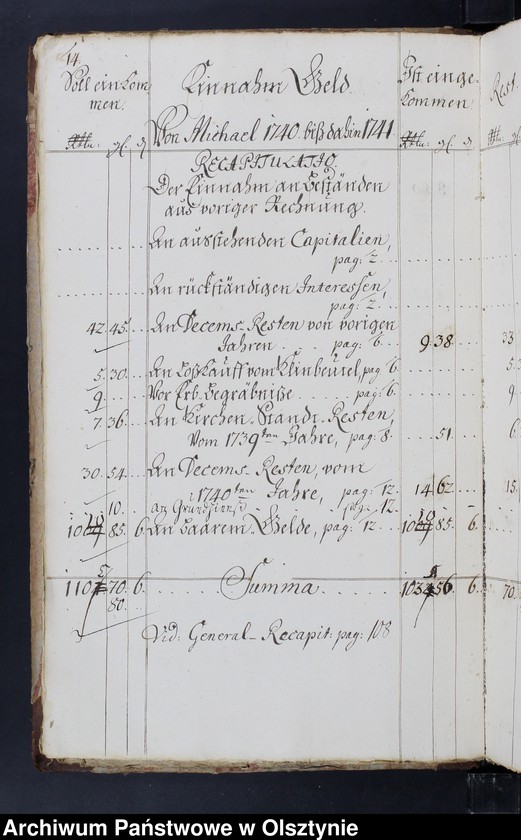 14.
Soll einkom
men.
Einnahm Geld.
Ist einge-
kommen
Rest
Rthr. gl. d
Von Michael 1740. biß dahin 1741
Rthr. gl. d
RECAPITULATIO.
Der Einnahm an Beständen
aus voriger Rechnung.
An ausstehenden Capitalien,
pag: 2.
An rückständigen Interessen,
pag: 2.
42. 45. An Decems-Resten von vorigen
Jahren pag: 6. 9. 38. 33
5. 30. An vom Klinbeutel, pag: 6. 5.
9. Vor Erb-Begräbniße pag: 6. 9
7. 36. An Kirchen-Stands-Resten,
Vom 1739ten Jahre, pag: 8. 51. 6.
30. 54. An Decems-Resten, vom
1740ten Jahre, pag: 12. 14 62 15.
10. an Grundzinß pag. 12.
85. 6. An baarem Gelde, pag: 12 85. 6.
70. 6. Summa 56 6. 70.
80.
Vid: General-Recapit: pag: 108
Archiwum Państwowe w Olsztynie